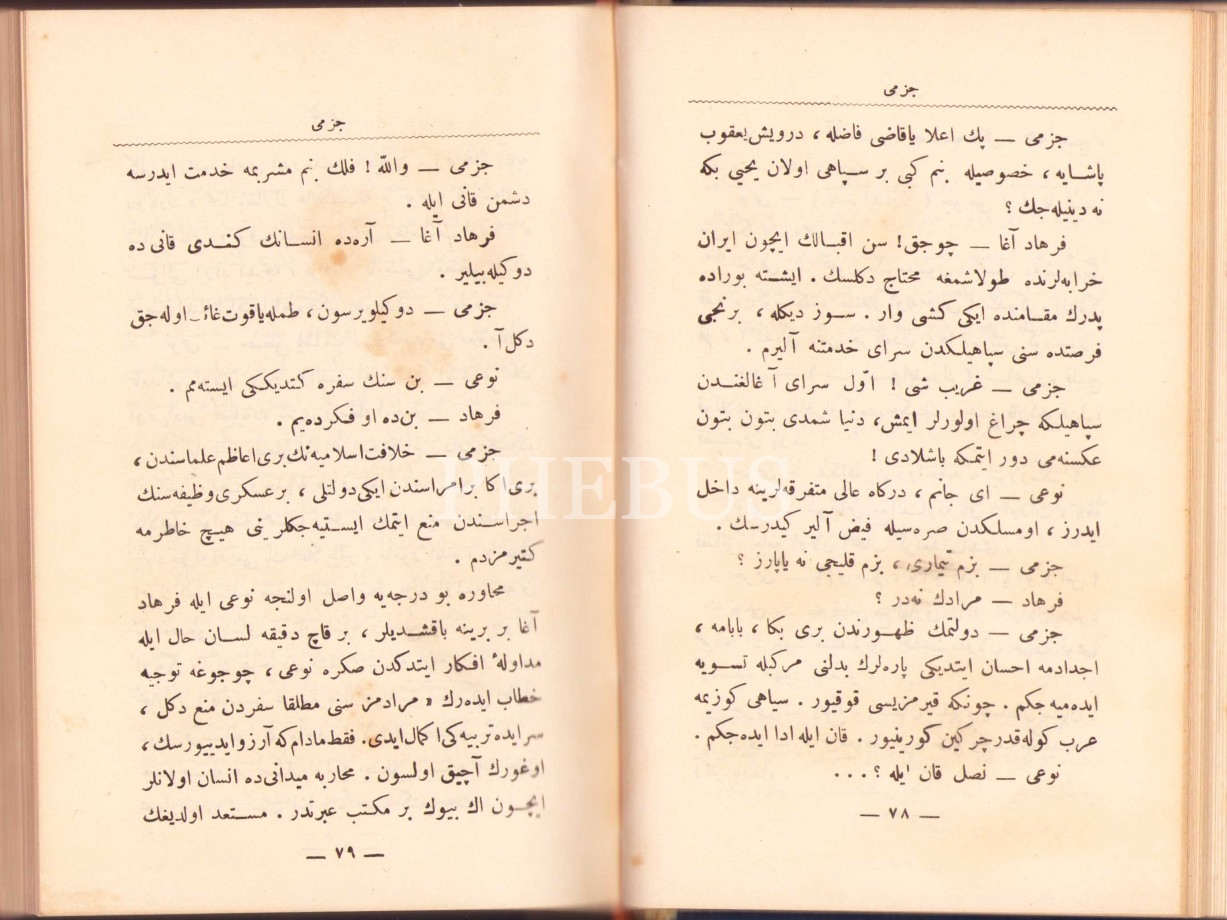 جزمی
جزمی — پك اعلا یاقاضی فاضله ، درویش یعقوب
پاشایه ، خصوصیله بنم كبی بر سپاهی اولان یحیی بكه
نه دینیله‌جك ؟
فرهاد آغا — چوجق ! سن اقبالك ایچون ایران
خرابه‌لرنده طولاشمغه محتاج دكلسك . ایشته بوراده
پدرك مقامنده ایكی كشی وار . سوز دیكله ، برنجی
فرصتده سنی سپاهیلكدن سرای خدمتنه آلیرم .
جزمی — غریب شی ! اوّل سرای آغالغندن
سپاهیلكه چراغ اولورلر ایمش، دنیا شمدی بتون بتون
عكسنه‌می دور ایتمكه باشلادی !
نوعی — ای جانم ، دركاه عالی متفرقه‌لرینه داخل
ایدرز ، اومسلكدن صره‌سیله فیض آلیر كیدرسك .
جزمی — بزم تیماری ، بزم قلیجی نه یاپارز ؟
فرهاد — مرادك نه‌در ؟
جزمی — دولتمك ظهورندن بری بكا ، بابامه ،
اجدادمه احسان ایتدیكی پاره‌لرك بدلنی مركبله تسویه
ایده‌میه‌جكم . چونكه قیرمزیسی قوقیور . سیاهی كوزیمه
عرب كوله قدر چركین كورینیور . قان ایله ادا ایده‌جكم .
نوعی — نصل قان ایله ؟ ...
— ٧٨ —
جزمی
جزمی — واللّه ! فلك بنم مشربمه خدمت ایدرسه
دشمن قانی ایله .
فرهاد آغا — آره‌ده انسانك كندی قانی ده
دوكیله‌بیلیر .
جزمی — دوكیلویرسون ، طمله یاقوت اوله‌جق
دكل آ .
نوعی — بن سنك سفره كتدیككی ایسته‌مم .
فرهاد — بن‌ده او فكرده‌یم .
جزمی — خلافت اسلامیه‌نك بری اعاظم علماسندن ،
بری اكابر امراسندن ایكی دولتلی ، بر عسكری وظیفه‌سنك
اجراسندن منع ایتمك ایستیه‌جكلرینی هیچ خاطرمه
كتیرمزدم .
محاوره بو درجه‌یه واصل اولنجه نوعی ایله فرهاد
آغا بر برینه باقشدیلر ، بر قاچ دقیقه لسان حال ایله
مداولهٔ افكار ایتدكدن صكره نوعی ، چوجوغه توجیه
خطاب ایده‌رك « مرادمز سنی مطلقا سفردن منع دكل ،
سرایده تربیه‌كی اكمال ایدی . فقط مادام كه آرزو ایدییورسك ،
اوغورك آچیق اولسون . محاربه میدانی‌ده انسان اولانلر
ایچون اك بیوك بر مكتب عبرتدر . مستعد اولدیغك
— ٧٩ —
PHEBUS